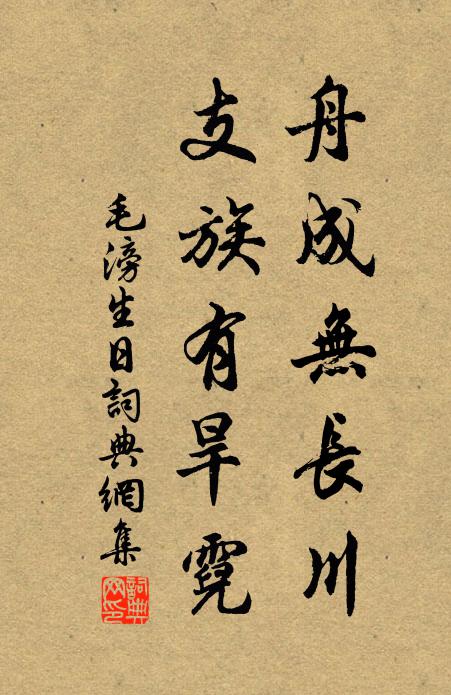 舟成無長川
支族有旱霓
毛滂生日詞典網集
詞典網印